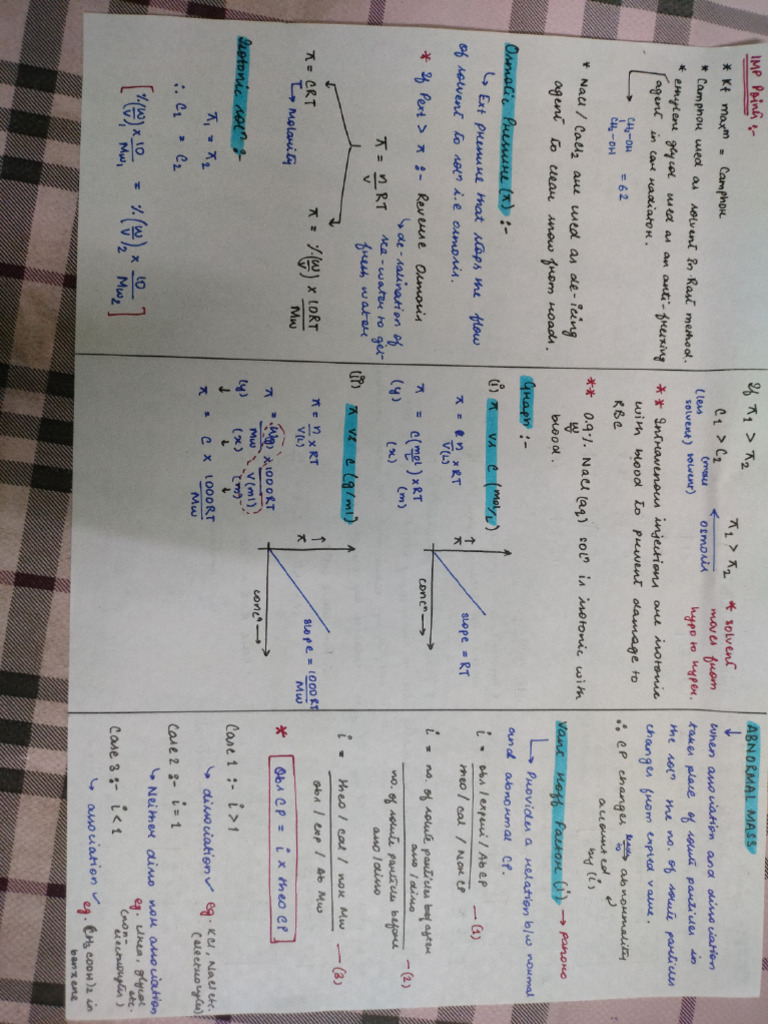 IMP Points :-
* Kf maxᵐ = Camphor
* Camphor used as solvent in Rast method.
* ethylene glycol used as an anti-freezing
agent in car radiator.
CH₂-OH
CH₂-OH = 62
* NaCl / CaCl₂ are used as de-icing
agent to clean snow from roads.
Osmotic Pressure (π) :-
↳ Ext pressure that stops the flow
of solvent to solⁿ i.e osmosis.
* If Pext > π :- Reverse Osmosis
↳ de-salination of
sea-water to get
fresh water
π = n/V RT
π = CRT
↳ molarity
π = %(w/v) × 10RT/Mw
Isotonic solⁿ :-
π₁ = π₂
∴ C₁ = C₂
[%(w/v)₁ × 10/Mw₁ = %(w/v)₂ × 10/Mw₂]
If π₁ > π₂
C₁ > C₂
(less solvent) (more solvent)
π₁ > π₂
← osmosis
* solvent
moves from
hypo to hyper.
** Intravenous injections are isotonic
with blood to prevent damage to
RBC
** 0.9% w/v NaCl(aq) solⁿ is isotonic with
blood.
Graph :-
(i) π vs C (mol/L)
π = n/V(L) × RT
π = C(mol/L) × RT
(y) (x) (m)
↑ π
concⁿ →
slope = RT
(ii) π vs C (g/ml)
π = n/V(L) × RT
π = W(g)/Mw × 1000RT/V(ml)
(y) (x) (m)
π = C × 1000RT/Mw
↑ π
concⁿ →
slope = 1000RT/Mw
ABNORMAL MASS
↓
when association and dissociation
takes place of solute particles in
the solⁿ the no. of solute particles
changes from expted value.
∴ CP changes leads to abnormality
accounted by (i)
Vant Hoff Factor (i) →
↳ Provides a relation b/w normal
and abnormal CP.
i = obs / expmi / Ab CP / theo / cal / Nor CP —(1)
i = no. of solute particles after asso / disso / no. of solute particles before asso / disso —(2)
i = theo / cal / nor Mw / obs / exp / Ab Mw —(3)
* obs CP = i × theo CP
Case 1 :- i > 1
↳ dissociation ✓ eg. KCl, NaCl etc.
(electrolytes)
Case 2 :- i = 1
↳ Neither disso nor association
eg. Urea, glycol etc.
(non electrolytes)
Case 3 :- i < 1
↳ association ✓ eg. (CH₃COOH)₂ in
benzene